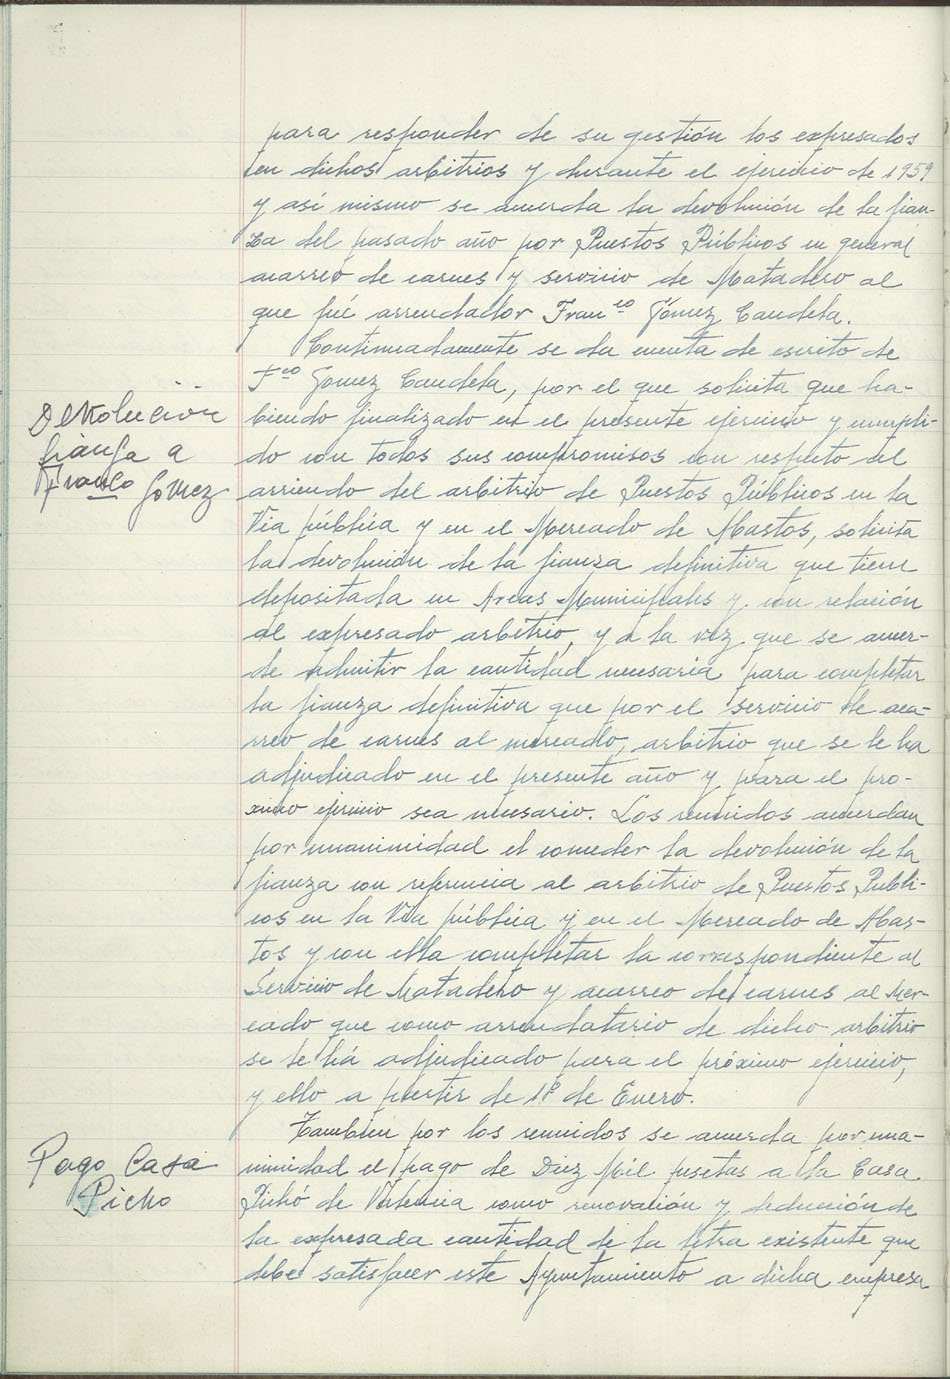 para responder de su gestión los expresados
en dichos arbitrios y durante el ejercicio de 1959
y así mismo se acuerda la devolución de la fian-
za del pasado año por Puestos Públicos en general
acarreo de carnes y servicio de Matadero al
que fué arrendador Fran<sup>co</sup> Gómez Candela.
Continuadamente se da cuenta de escrito de
F<sup>co</sup> Gomez Candela, por el que solicita que ha-
Devolución
fianza a
Fran<sup>co</sup> Gomez
biendo finalizado en el presente ejercicio y cumpli-
do con todos sus compromisos con respecto al
arriendo del arbitrio de Puestos Públicos en la
Via pública y en el Mercado de Abastos, solicita
la devolución de la fianza definitiva que tiene
depositada en Arcas Municipales y con relación
al expresado arbitrio, y a la vez que se acuer-
de admitir la cantidad necesaria para completar
la fianza definitiva que por el servicio de aca-
rreo de carnes al mercado, arbitrio que se le ha
adjudicado en el presente año y para el pró-
ximo ejercicio sea necesario. Los reunidos acuerdan
por unanimidad el conceder la devolución de la
fianza con referencia al arbitrio de Puestos Publi-
cos en la Via pública y en el Mercado de Abas-
tos y con ella completar la correspondiente al
Servicio de Matadero y acarreo de carnes al Mer-
cado que como arrendatario de dicho arbitrio
se le há adjudicado para el próximo ejercicio,
y ello a partir de 1º de Enero.
Tambien por los reunidos se acuerda por una-
Pago Casa
Picho
nimidad el pago de Diez Mil pesetas a la Casa
Pichó de Valencia como renovación y deducción de
la expresada cantidad de la letra existente que
debe satisfacer este Ayuntamiento a dicha empresa